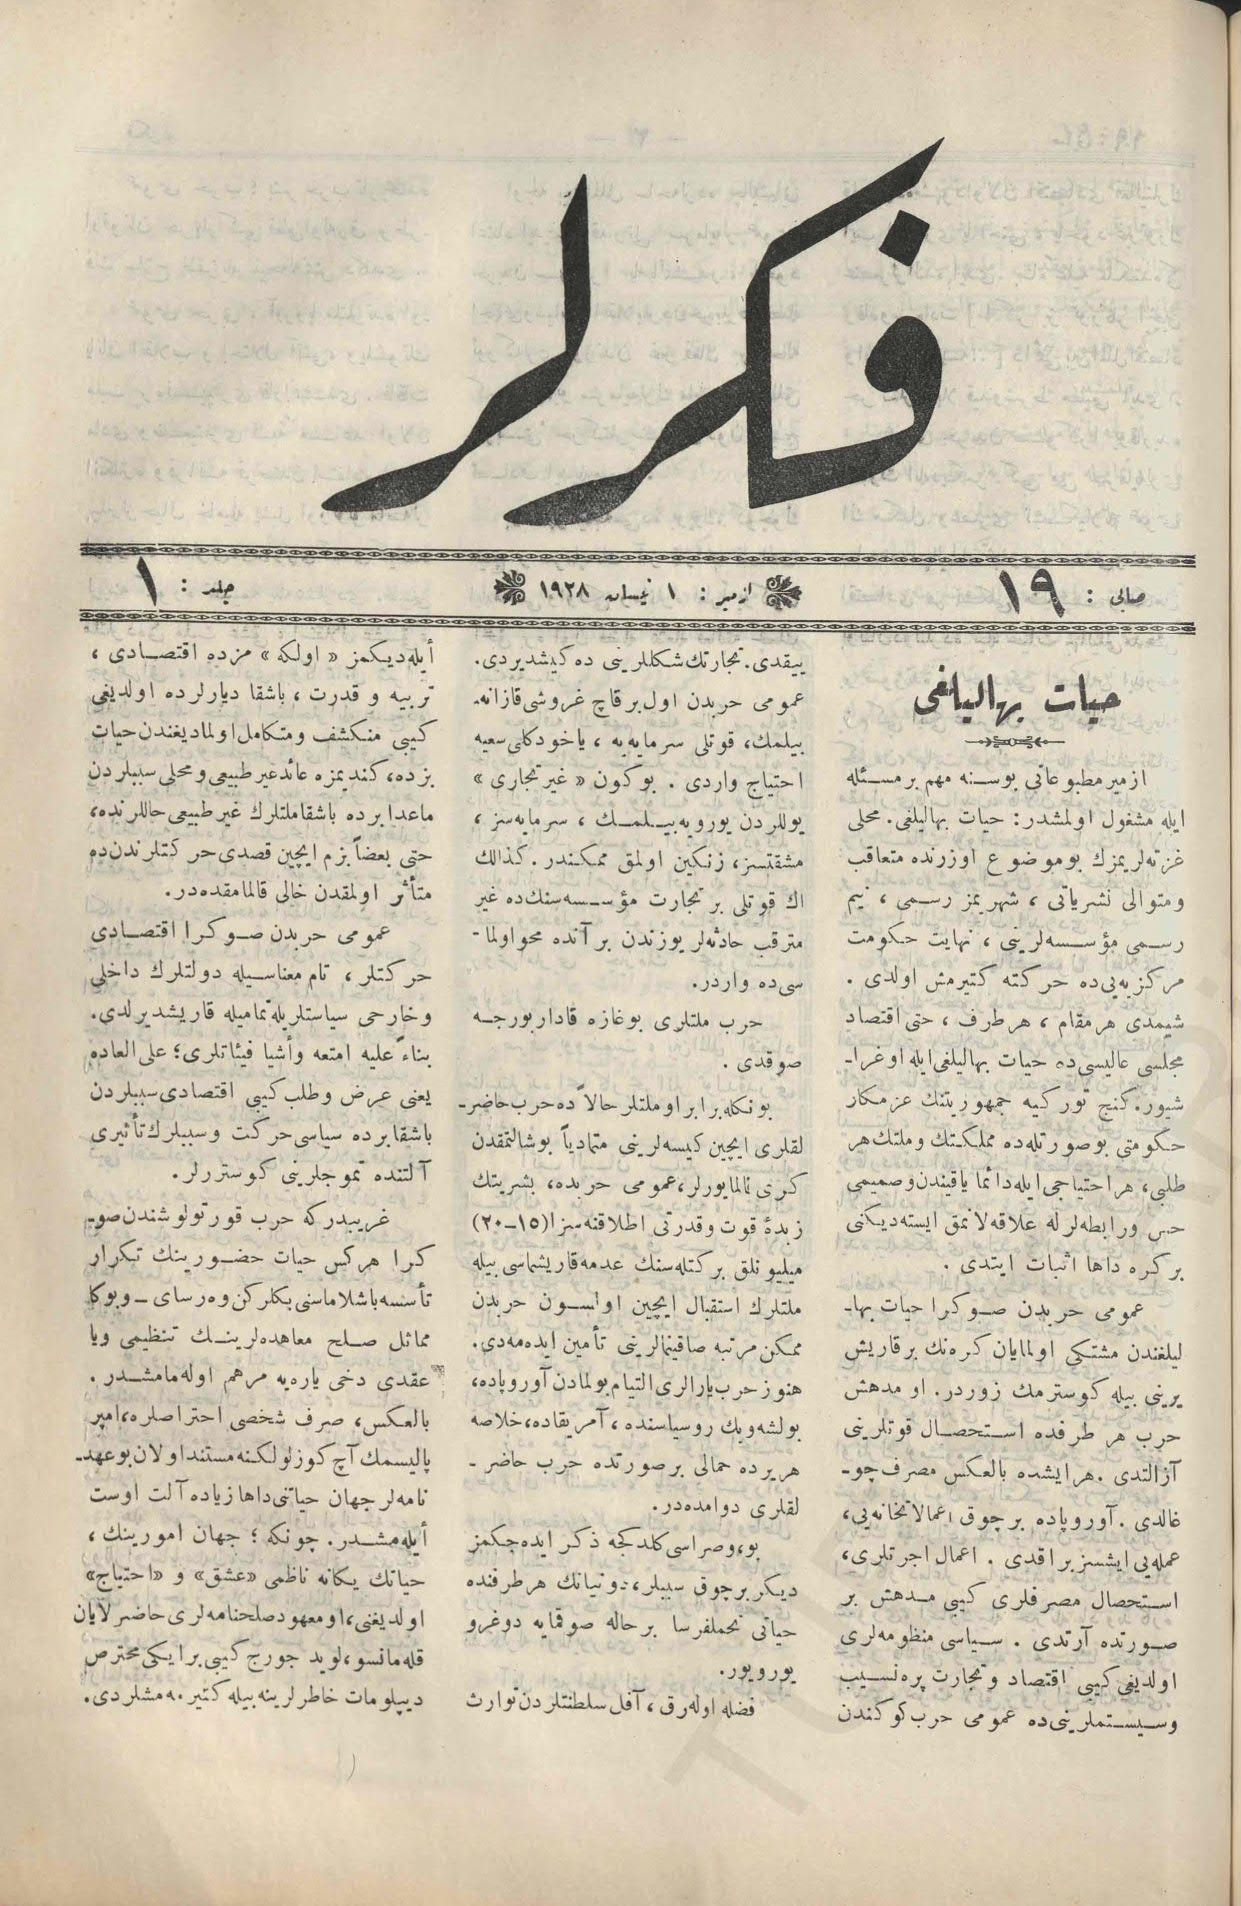 فكرلر
صايى : ١٩
ازمير : ١ نيسان ١٩٢٨
جلد : ١
حيات بهاليلغى
ازمير مطبوعاتى بوسنه مهم برمسئله
ايله مشغول اولمشدر: حيات بهاليلغى. محلى
غزته‌لريمزك بوموضوع اوزرنده متعاقب
ومتوالى نشرياتى ، شهريمز رسمى ، نيم
رسمى مؤسسه‌لرينى ، نهايت حكومت
مركزيه‌يى‌ده حركته كتيرمش اولدى .
شيمدى هرمقام ، هرطرف ، حتى اقتصاد
مجلسى عاليسى‌ده حيات بهاليلغى ايله اوغرا-
شيور. كنج توركيه جمهوريتنك عزمكار
حكومتى بوصورتله‌ده مملكتك وملتك هر
طلبى، هراحتياجى ايله دائما ياقيندن وصميمى
حس ورابطه‌لرله علاقه‌لانمق ايسته‌ديكنى
بركره داها اثبات ايتدى .
عمومى حربدن صوكرا حيات بها-
ليلغندن مشتكى اولمايان كره‌نك برقاريش
يرينى بيله كوسترمك زوردر. او مدهش
حرب هر طرفده استحصال قوتلرينى
آزالتدى . هرايشده بالعكس مصرف چو-
غالدى . آوروپاده برچوق اعمالاتخانه‌يى،
عمله‌يى ايشسز براقدى . اعمال اجرتلرى،
استحصال مصرفلرى كيبى مدهش بر
صورتده آرتدى . سياسى منظومه‌لرى
اولديغى كيبى اقتصاد وتجارت پره‌نسيب
وسيستملرينى‌ده عمومى حرب كوكندن
ييقدى. تجارتك شكللرينى ده كيشديردى.
عمومى حربدن اول برقاچ غروشى قازانه-
بيلمك، قوتلى سرمايه‌يه ، ياخود كلى سعيه
احتياج واردى . بوكون « غير تجارى »
يوللردن يورويه‌بيلمك ، سرمايه‌سز ،
مشقتسز، زنكين اولمق ممكندر. كذالك
اك قوتلى بر تجارت مؤسسه‌سنك‌ده غير
مترقب حادثه‌لر يوزندن بر آنده محواولما-
سى‌ده واردر.
حرب ملتلرى بوغازه قادار بورجه
صوقدى .
بونكله برابر اوملتلر حالاً ده حرب حاضر-
لقلرى ايچين كيسه‌لرينى متمادياً بوشالتمقدن
كرى قالمايورلر، عمومى حربده، بشريتك
زبدۀ قوت وقدرتى اطلاقنه سزا (١٥-٢٠)
ميليونلق بركتله‌سنك عدمه قاريشماسى بيله
ملتلرك استقبال ايچين اولسون حربدن
ممكن مرتبه صاقينمالرينى تأمين ايده‌مه‌دى.
هنوز حرب يارالرى التيام بولمادن آوروپاده،
بولشه‌ويك روسياسنده ، آمريقاده، خلاصه
هريرده حمالى برصورتده حرب حاضر-
لقلرى دوامده‌در.
بو، وصراسى كلدكجه ذكر ايده‌جكمز
ديكر برچوق سببلر، دونيانك هرطرفنده
حياتى تحملفرسا برحاله صوقمايه دوغرو
يورويور.
فضله اوله‌رق ، آفل سلطنتلردن توارث
أيله‌ديكمز « اولكه » مزده اقتصادى ،
تربيه و قدرت ، باشقا ديارلرده اولديغى
كيبى منكشف ومتكامل اولماديغندن حيات
بزده، كنديمزه عائد غير طبيعى ومحلى سببلردن
ماعدا برده باشقا ملتلرك غير طبيعى حاللرنده،
حتى بعضاً بزم ايچين قصدى حركتلرندن‌ده
متأثر اولمقدن خالى قالمامقده‌در.
عمومى حربدن صوكرا اقتصادى
حركتلر ، تام معناسيله دولتلرك داخلى
وخارجى سياستلريله تماميله قاريشديرلدى.
بناءً عليه امتعه وأشيا فيئاتلرى؛ على العاده
يعنى عرض وطلب كيبى اقتصادى سببلردن
باشقا برده سياسى حركت وسببلرك تأثيرى
آلتنده تموجلرينى كوستررلر.
غريبدركه حرب قورتولوشندن صو-
كرا هركس حيات حضورينك تكرار
تأسسه باشلاماسنى بكلركن وه‌رساى ـ وبوكا
مماثل صلح معاهده‌لرينك تنظيمى ويا
عقدى دخى يارەيه مرهم اوله‌مامشدر .
بالعكس، صرف شخصى احتراصلره، امپر
ياليسمك آچ كوزلولكنه مستند اولان بوعهد-
نامه‌لر جهان حياتنى داها زياده آلت اوست
أيله‌مشدر. چونكه ؛ جهان امورينك ،
حياتك يكانه ناظمى «عشق» و «احتياج»
اولديغنى، اومعهود صلحنامه‌لرى حاضرلايان
قله‌مانسو، لويد جورج كيبى برايكى محترص
ديپلومات خاطرلرينه بيله كتيرمه‌مشلردى.